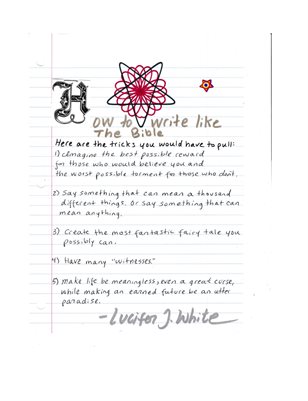 How to write like
The Bible
Here are the tricks you would have to pull:
1) Imagine the best possible reward
for those who would believe you and
the worst possible torment for those who don't.
2) Say something that can mean a thousand
different things. Or say something that can
mean anything.
3) Create the most fantastic fairy tale you
possibly can.
4) Have many "witnesses"
5) Make life be meaningless, even a great curse,
while making an earned future be an utter
paradise.
-Lucifer J. White